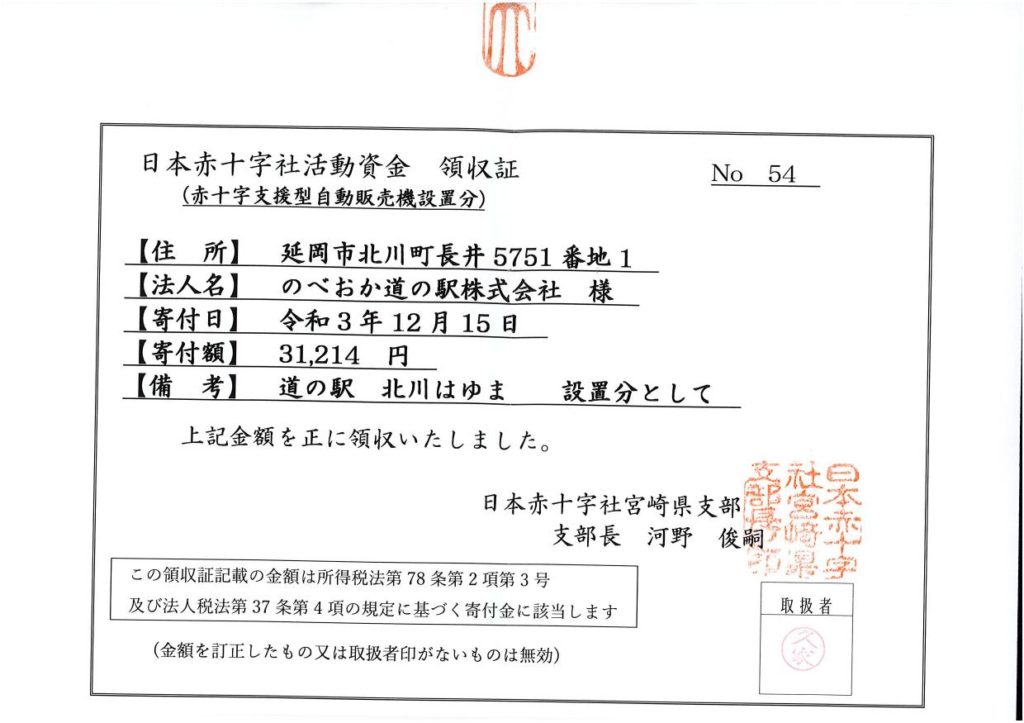 日本赤十字社活動資金 領収証
No 54
(赤十字支援型自動販売機設置分)
【住 所】 延岡市北川町長井5751番地1
【法人名】 のべおか道の駅株式会社 様
【寄付日】 令和3年12月15日
【寄付額】 31,214 円
【備 考】 道の駅 北川はゆま 設置分として
上記金額を正に領収いたしました。
日本赤十字社宮崎県支部
支部長 河野 俊嗣
日本赤十字
社宮崎県
支部長之印
この領収証記載の金額は所得税法第78条第2項第3号
及び法人税法第37条第4項の規定に基づく寄付金に該当します
取扱者
(金額を訂正したもの又は取扱者印がないものは無効)